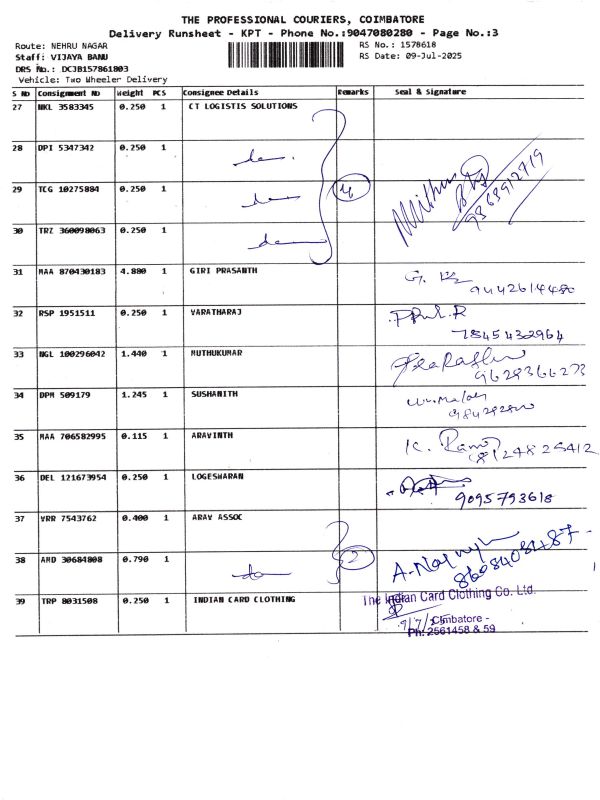 THE PROFESSIONAL COURIERS, COIMBATORE
Delivery Runsheet - KPT - Phone No.:9047080280 - Page No.:3
Route: NEHRU NAGAR
RS No.: 1578618
Staff: VIJAYA BANU
RS Date: 09-Jul-2025
DRS No.: DCJB157861803
Vehicle: Two Wheeler Delivery
S No Consignment No Weight PCS Consignee Details Remarks Seal & Signature
27 NKL 3583345 0.250 1 CT LOGISTIS SOLUTIONS
28 DPI 5347342 0.250 1
29 TCG 10275884 0.250 1 4
9363912719
30 TRZ 360098063 0.250 1
31 MAA 870430183 4.880 1 GIRI PRASANTH
9442614480
32 RSP 1951511 0.250 1 VARATHARAJ
7845432964
33 NGL 100296042 1.440 1 MUTHUKUMAR
9629366273
34 DPM 509179 1.245 1 SUSHANITH
35 MAA 706582995 0.115 1 ARAVINTH K.
8124825412
36 DEL 121673954 0.250 1 LOGESWARAN
9095793618
37 VRR 7543762 0.400 1 ARAV ASSOC
38 AMD 30684808 0.790 1 2 A.
8608408487
39 TRP 8031508 0.250 1 INDIAN CARD CLOTHING The Indian Card Clothing Co. Ltd.
9/7/25 Cimbatore -
Ph: 2561458 & 59